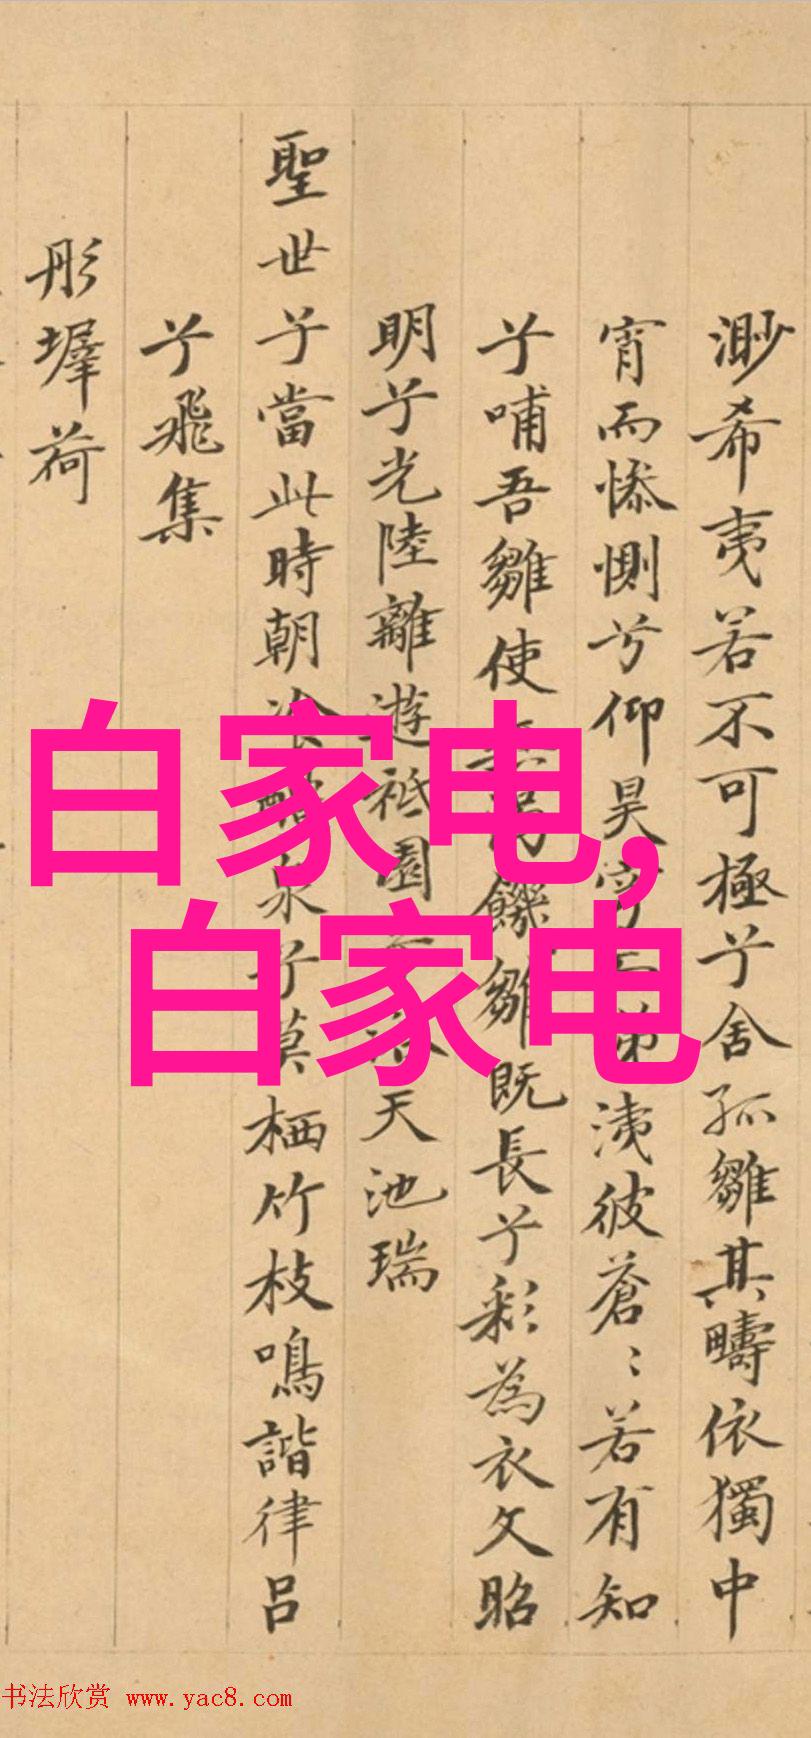 渺希夷若不可極兮舍孤雛其疇依獨中
宵而慘惻兮仰昊穹 洟彼蒼〻若有知
兮哺吾雛使 饑雛既長兮彩為衣文昭
明兮光陸離遊祇園 天池瑞
聖世兮當此時朝 泉兮莫栖竹枝鳴諧律呂
兮飛集
彤墀荷
白家电,
白家电
书法欣赏 www.yac8.com